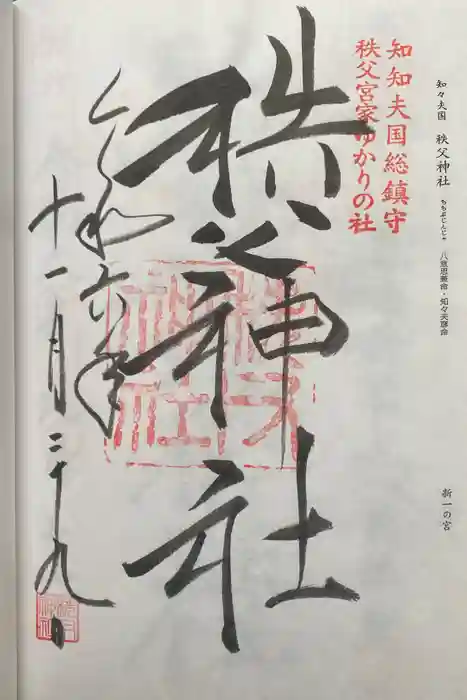 知々夫国 秩父神社 ちちぶじんじゃ 八意思兼命・知々夫彦命
新一の宮
知知夫国総鎮守
秩父宮家ゆかりの社
秩父神社
令和六年
十一月二十九日
秩父神社